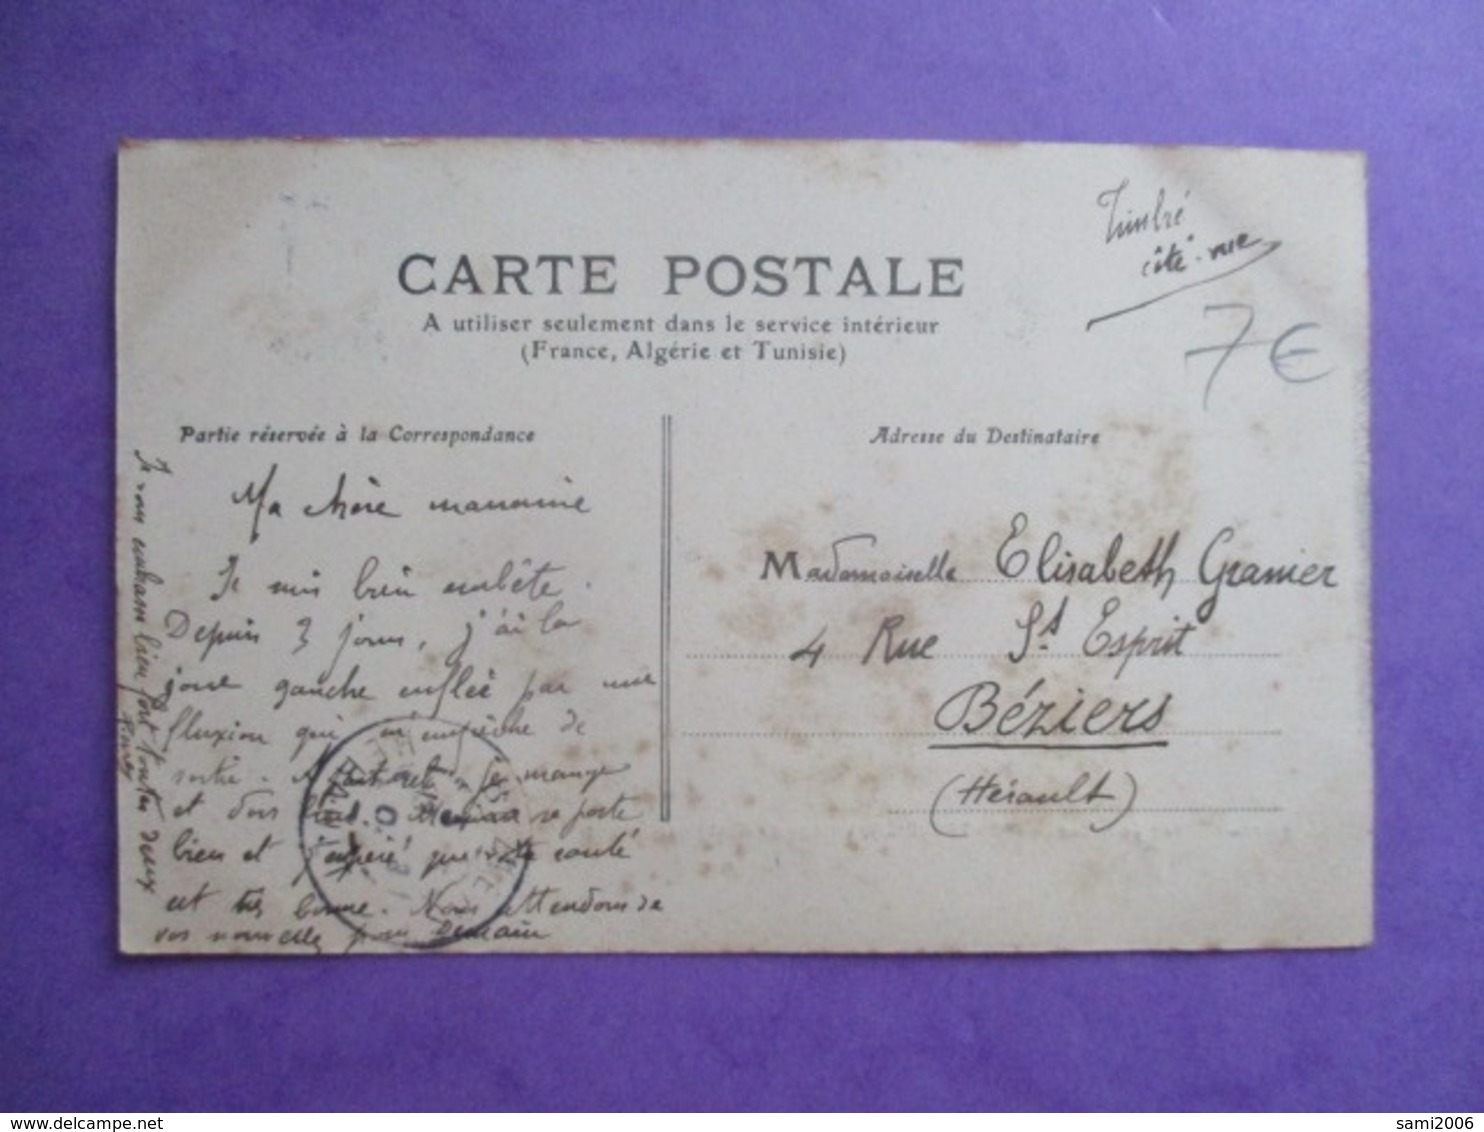 Timbré
côté vue
7€
CARTE POSTALE
A utiliser seulement dans le service intérieur
(France, Algérie et Tunisie)
Partie réservée à la Correspondance
Adresse du Destinataire
Ma chère marraine
Je suis bien embêté.
Depuis 3 jours, j'ai la
joue gauche enflée par une
fluxion qui m'empêche de
sortir. A part cela je mange
et dors bien. se porte
bien et j'espère que votre santé
est très bonne. Nous attendons de
vos nouvelles pour demain
Je vous embrasse bien fort toutes deux
Mademoiselle Elisabeth Granier
4 Rue St Esprit
Béziers
(Hérault)
delcampe.net
sami2006